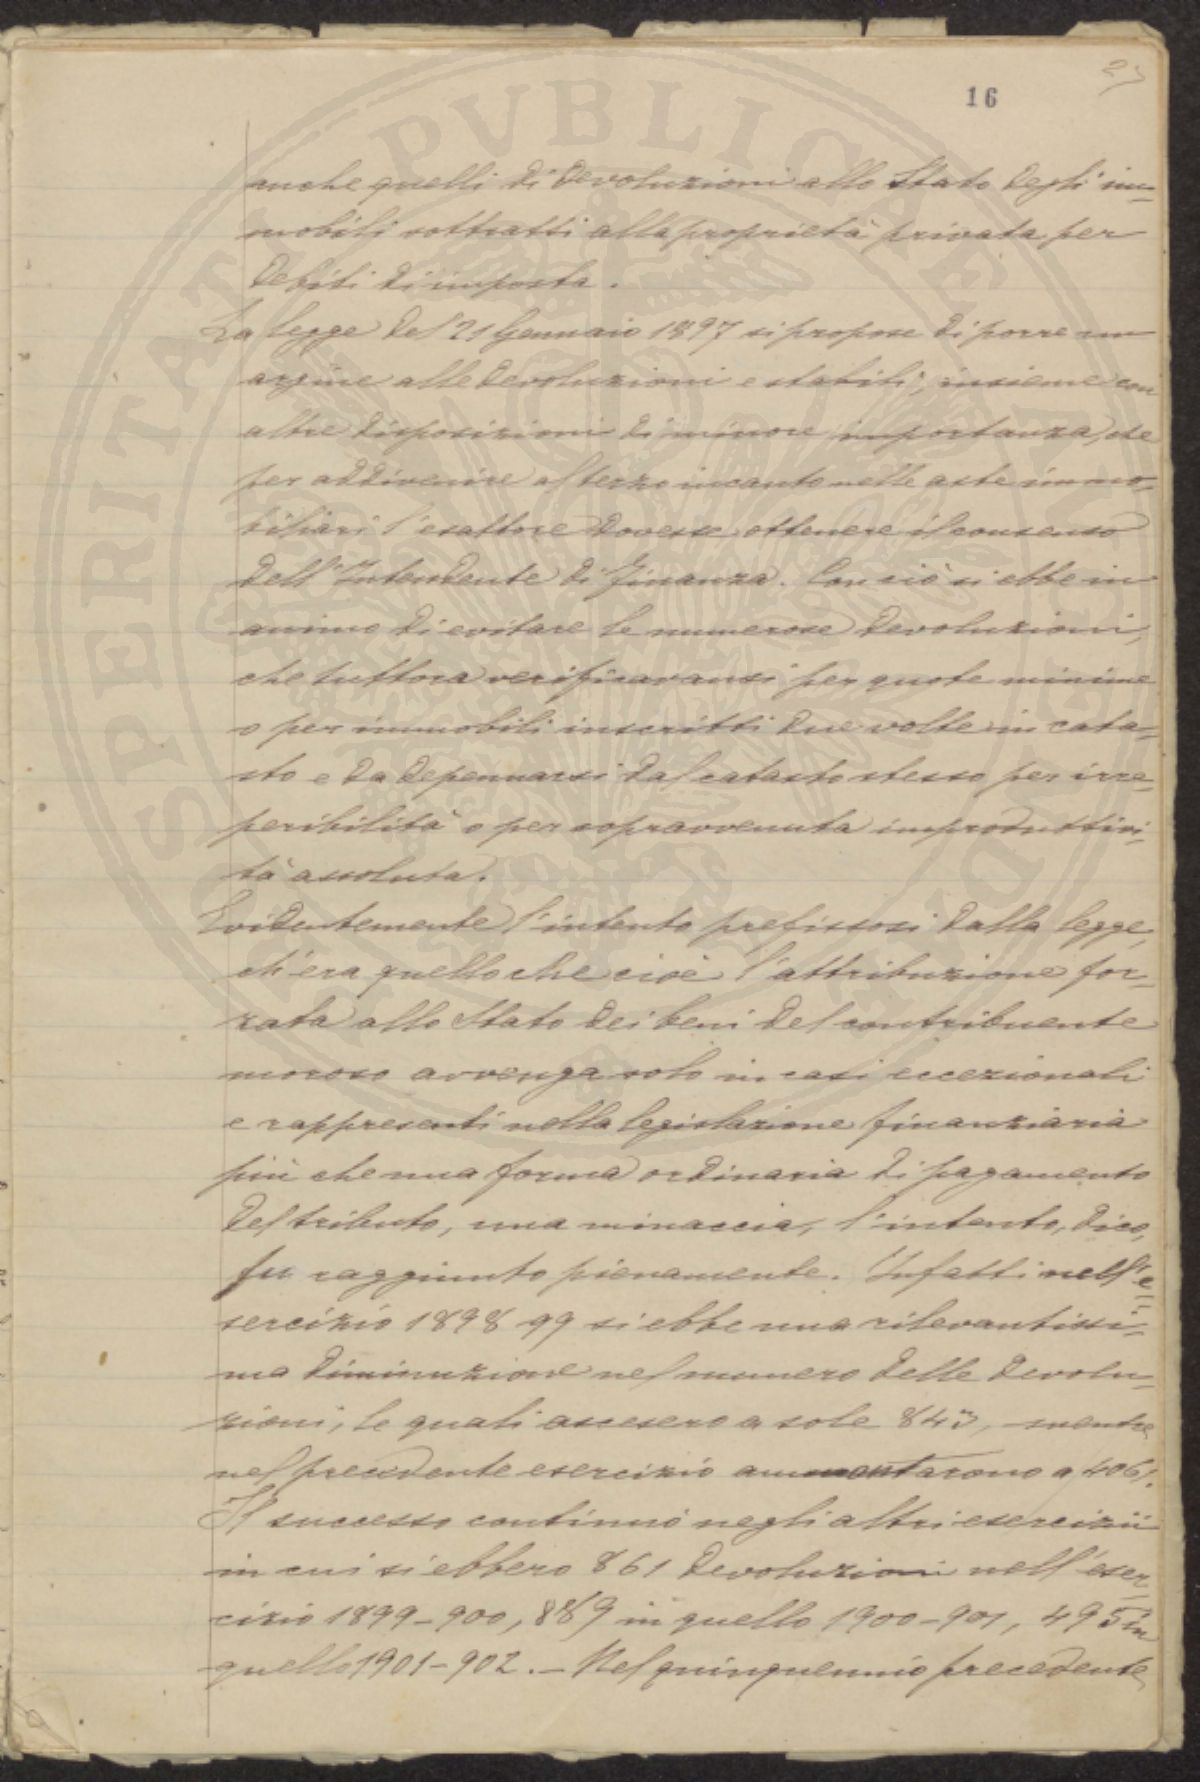 16
anche quelli di devoluzioni allo Stato degli im-
mobili sottratti alla proprietà privata per
debiti di imposta.
La legge del 21 Gennaio 1897 si propose di porre un
argine alle devoluzioni e stabilì, insieme con
altre disposizioni di minore importanza, che
per addivenire al terzo incanto nelle aste immo-
biliari l'esattore dovesse ottenere il consenso
dell'Intendente di Finanza. Con ciò si ebbe in
animo di evitare le numerose devoluzioni,
che tuttora verificavansi per quote minime
o per immobili inscritti due volte in cata-
sto e da depennarsi dal catasto stesso per irre-
peribilità o per sopravvenuta improduttivi-
tà assoluta.
Evidentemente l'intento prefissosi dalla legge,
ch'era quello che cioè l'attribuzione for-
zata allo Stato dei beni del contribuente
moroso avvenga solo in casi eccezionali
e rappresenti nella legislazione finanziaria
più che una forma ordinaria di pagamento
del tributo, una minaccia, l'intento, dico,
fu raggiunto pienamente. Infatti nell'e-
sercizio 1898-99 si ebbe una rilevantissi-
ma diminuzione nel numero delle devolu-
zioni, le quali ascesero a sole 843, mentre
nel precedente esercizio ammontarono a 4061.
Il successo continuò negli altri esercizii
in cui si ebbero 861 devoluzioni nell'eser-
cizio 1899-900, 889 in quello 1900-901, 495 in
quello 1901-902. - Nel quinquennio precedente
PVBLICAE
SPERITATI